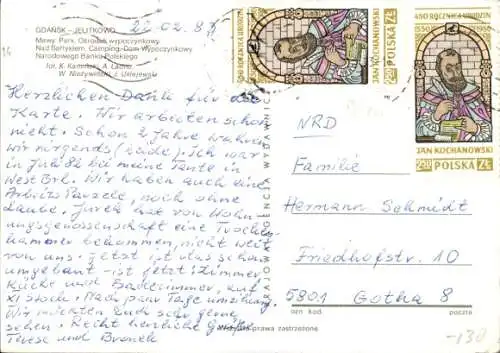 GDAŃSK — JELITKOWO
Mewy. Park. Ośrodek wypoczynkowy
Nad Bałtykiem. Camping. Dom Wypoczynkowy
Narodowego Banku Polskiego
fot. K. Kamiński, A.
W. Niezywiński, J. Uklejewski
22.02.87
Herzlichen Dank für die
Karte. Wir arbeiten schon
nicht. Schon 2 Jahre wahren
wir nirgends (Leide). Ich war
in Juli 86 bei meine Tante in
West Brl. Wir haben auch eine
Arbeits Parzele, noch ohne
Laube. Jurek hat von Wohn
ungsgenossenschaft eine
kammer bekommen, nicht weit
von uns. Jetzt ist das schon
umgebaut - ist jetzt: Zimmer,
Küche und Badezimmer, auf
XI stock. Nach paar Tage umziehung.
Wir möchten Euch sehr gerne
sehen. Recht herzliche Grüße
Terese und Bronek
KRAJOWA AGENCJA WYDAWNICZA
prawa zastrzeżone
400 ROCZNICA URODZIN
1530 1980
JAN KOCHANOWSKI
2.50 POLSKA ZŁ
450 ROCZNICA URODZIN
1530 1980
JAN KOCHANOWSKI
2.50 POLSKA ZŁ
NRD
Familie
Hermann Schmidt
Friedhofstr. 10
5801 Gotha 8
kod poczta
-130